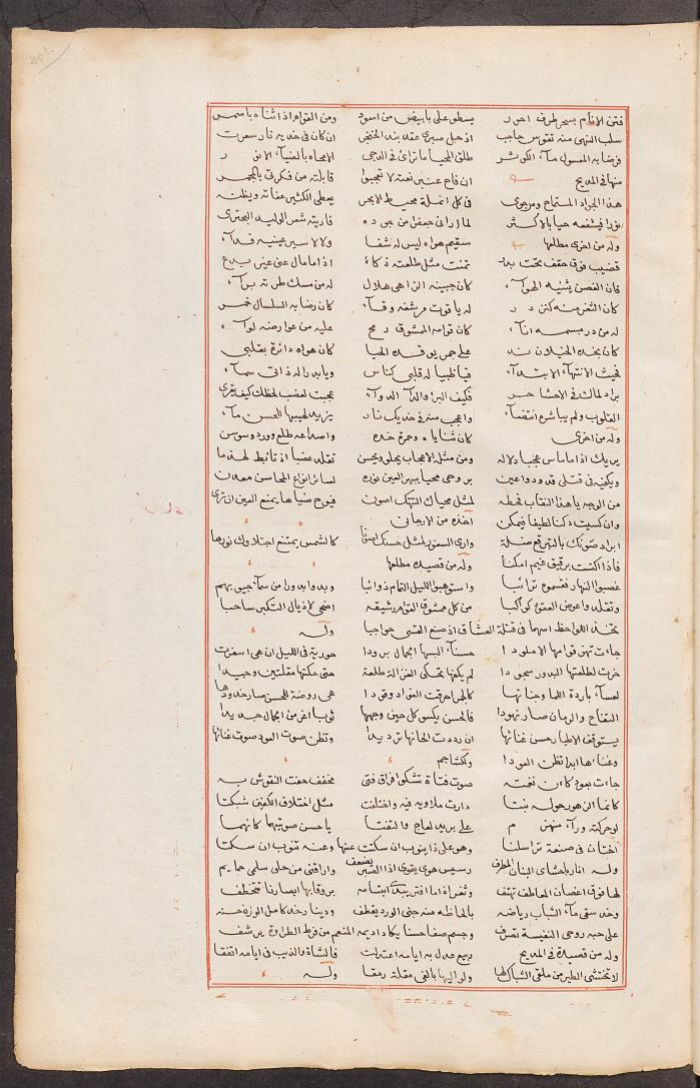 فتن الانام بسحر طرف احور يسطو على بابيض من اسود ومن القوام اذا انثناه باسمر
سلب النهى منه تقوس حاجب اذ حل صبرى عقد بند الخنجر ان كان فى خديه نار سعرت
فرضابه المعسول مآء الكوثر طلق المحيا ما تراى فى الدجى الا محاه بالضيآء الانور
منها فى المديح ان فاح عنبر نعته لا تعجبوا قابلته من فكرتى بالمجمر
هذا الجواد المستماح ومن حوى فى كل انملة محيط الابحر يعطى الكثير عفاته ويظنه
نزرا فيشفعه حيا بالاكثر لما ارانى جعفرا من جوده قاريته شعر الوليد البحترى
وله من اخرى مطلعها سقيم هواه ليس له شفآ ولا لاسير عينيه فدآء
قضيب فوق حقف تحت بدر تمنت مثل طلعته ذكآء اذا ما مال عنى غير بدع
فان الغصن يثنيه الهوآء كان جبينه الزاهى هلال له من مسك طرته برآء
كان الثغر منه كنز در له ياقوت مرشفه وقآء كان رضابه السلسال خمر
له من در مبسمه انآء كان قوامه الممشوق رمح عليه من عوارضه لوآء
كان بخده الخيلان ند على جمر يوقده الحيا كان هواه دائرة بقلبى
فحيث الانتهآء الابتدآء فيا ظبيا له قلبى كناس ويا بدرا له ذاتى سمآء
براد لمالك فى الاحشا فكيف البرء والدآء الدوآء عجبت لعضب لحظك كيف يفرى
القلوب ولم يباشره انتضآء واعجب منه فى خديك نار يزيد لهيبها للحسن مآء
وله من اخرى كان ثناياه وحمرة خده واصداغه طلع وورد وسوسن
يريك اذا ما ماس عجبا دلاله ومن مثل الاعجاب يحلو ويحسن تقلد عضبا اذ تأبط لهذما
ويكفيه فى قتلى قدود واعين بروحى محيا يبهر العين نوره لسائر انواع المحاسن معدن
من الوجه يا هذا النقاب فحطه لمثل محياك التهتك اصون فيوح ضياها يمنع العين ان ترى
وان كسيت دكنا لطيفا فيمكن اخذه من الارجانى
ابراد صونك بالتبرقع ضلة وارى السفور لمثل حسنك اصونا كالشمس يمتنع اجتلاؤك نورها
فاذا اكتست برقيق غيم امكنا وله من قصيده مطلعها
غصبوا النهار فقسموه ترائبا واستوهبوا الليل التمام ذوائبا وبدوا بدورا من سمآ جيوبهم
وتقلدوا عوض العقود كواكبا من كل ممشوق القوام رشيقه اضحى لاذيال التكبر ساحبا
يتخذ اللواحظ اسهما فى قتلة العشاق اذ صنع القسى حواجبا وله
جاءت تهز قوامها الاملودا حسنآء البسها الجمال برودا حورية فى الليل ان هى اسفرت
خرت لطلعتها البدور سجودا لم يكفها تحكى الغزالة طلعة حتى حكتها مقلتين وجيدا
لعسآء باردة اللما وجناتها كالجمر احرقت الفؤاد وقودا هى روضة للحسن صار خدودها
التفاح والرمان صار نهودا فالحسن يكسو كل حين وجهها ثوبا اغر من الجمال جديدا
يستوقف الاطيار حسن غنائها ان رددت الحانها ترديدا وتظن صوت العود صوت غنائها
وغناءها ابدا تظن العودا ولكشاجم
جاءت بعود كان نغمته صوت فتاة تشكو فراق فتى محفف حفت النقوش به
كانما الزهر حوله نبتا دارت ملاويه فيه واختلفت مثل اختلاف الكفين شبكتا
لو حركته ورآء منهزم على بريد لعاج والتفتا يا حسن صوتيهما كانهما
اختان فى صنعة تراسلتا وهو على ذا ينوب ان سكتت عنها وعنه تنوب ان سكتا
وله رسيس هوى يقوى اذا الصبر يضعف واراقنى من حلى سلمى حمايم
لها فوق اغصان المعاطف تهتف وثغر اذا ما افتر يبدى ابتسامه بروقا بها ابصارنا تتخطف
وخد سقى مآء الشباب رياضه بالحاظه منه جنى الورد يقطف ودينار خد كامل الوزن حسنه
على حبه روحى النفيسة تصرف وجسم صفا حسنا يكاد اديمه المنعم من فرط الطراوة يرشف
وله من قصيدة فى المديح ربيع عدل به ايامه اعتدلت فالشاة والذيب فى ايامه اتفقا
لا تختشى الطير من ملقى الشباك لها ولو اليها بالفى مقلة رمقا وله